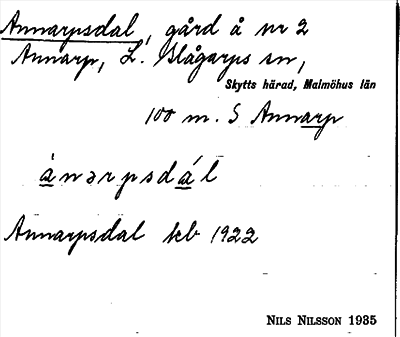 Annarpsdal, gård å nr 2
Annarp, L. Slågarps sn,
Skytts härad, Malmöhus län
100 m. S Annarp
ànərpsdál
Annarpsdal kcb 1922
NILS NILSSON 1935